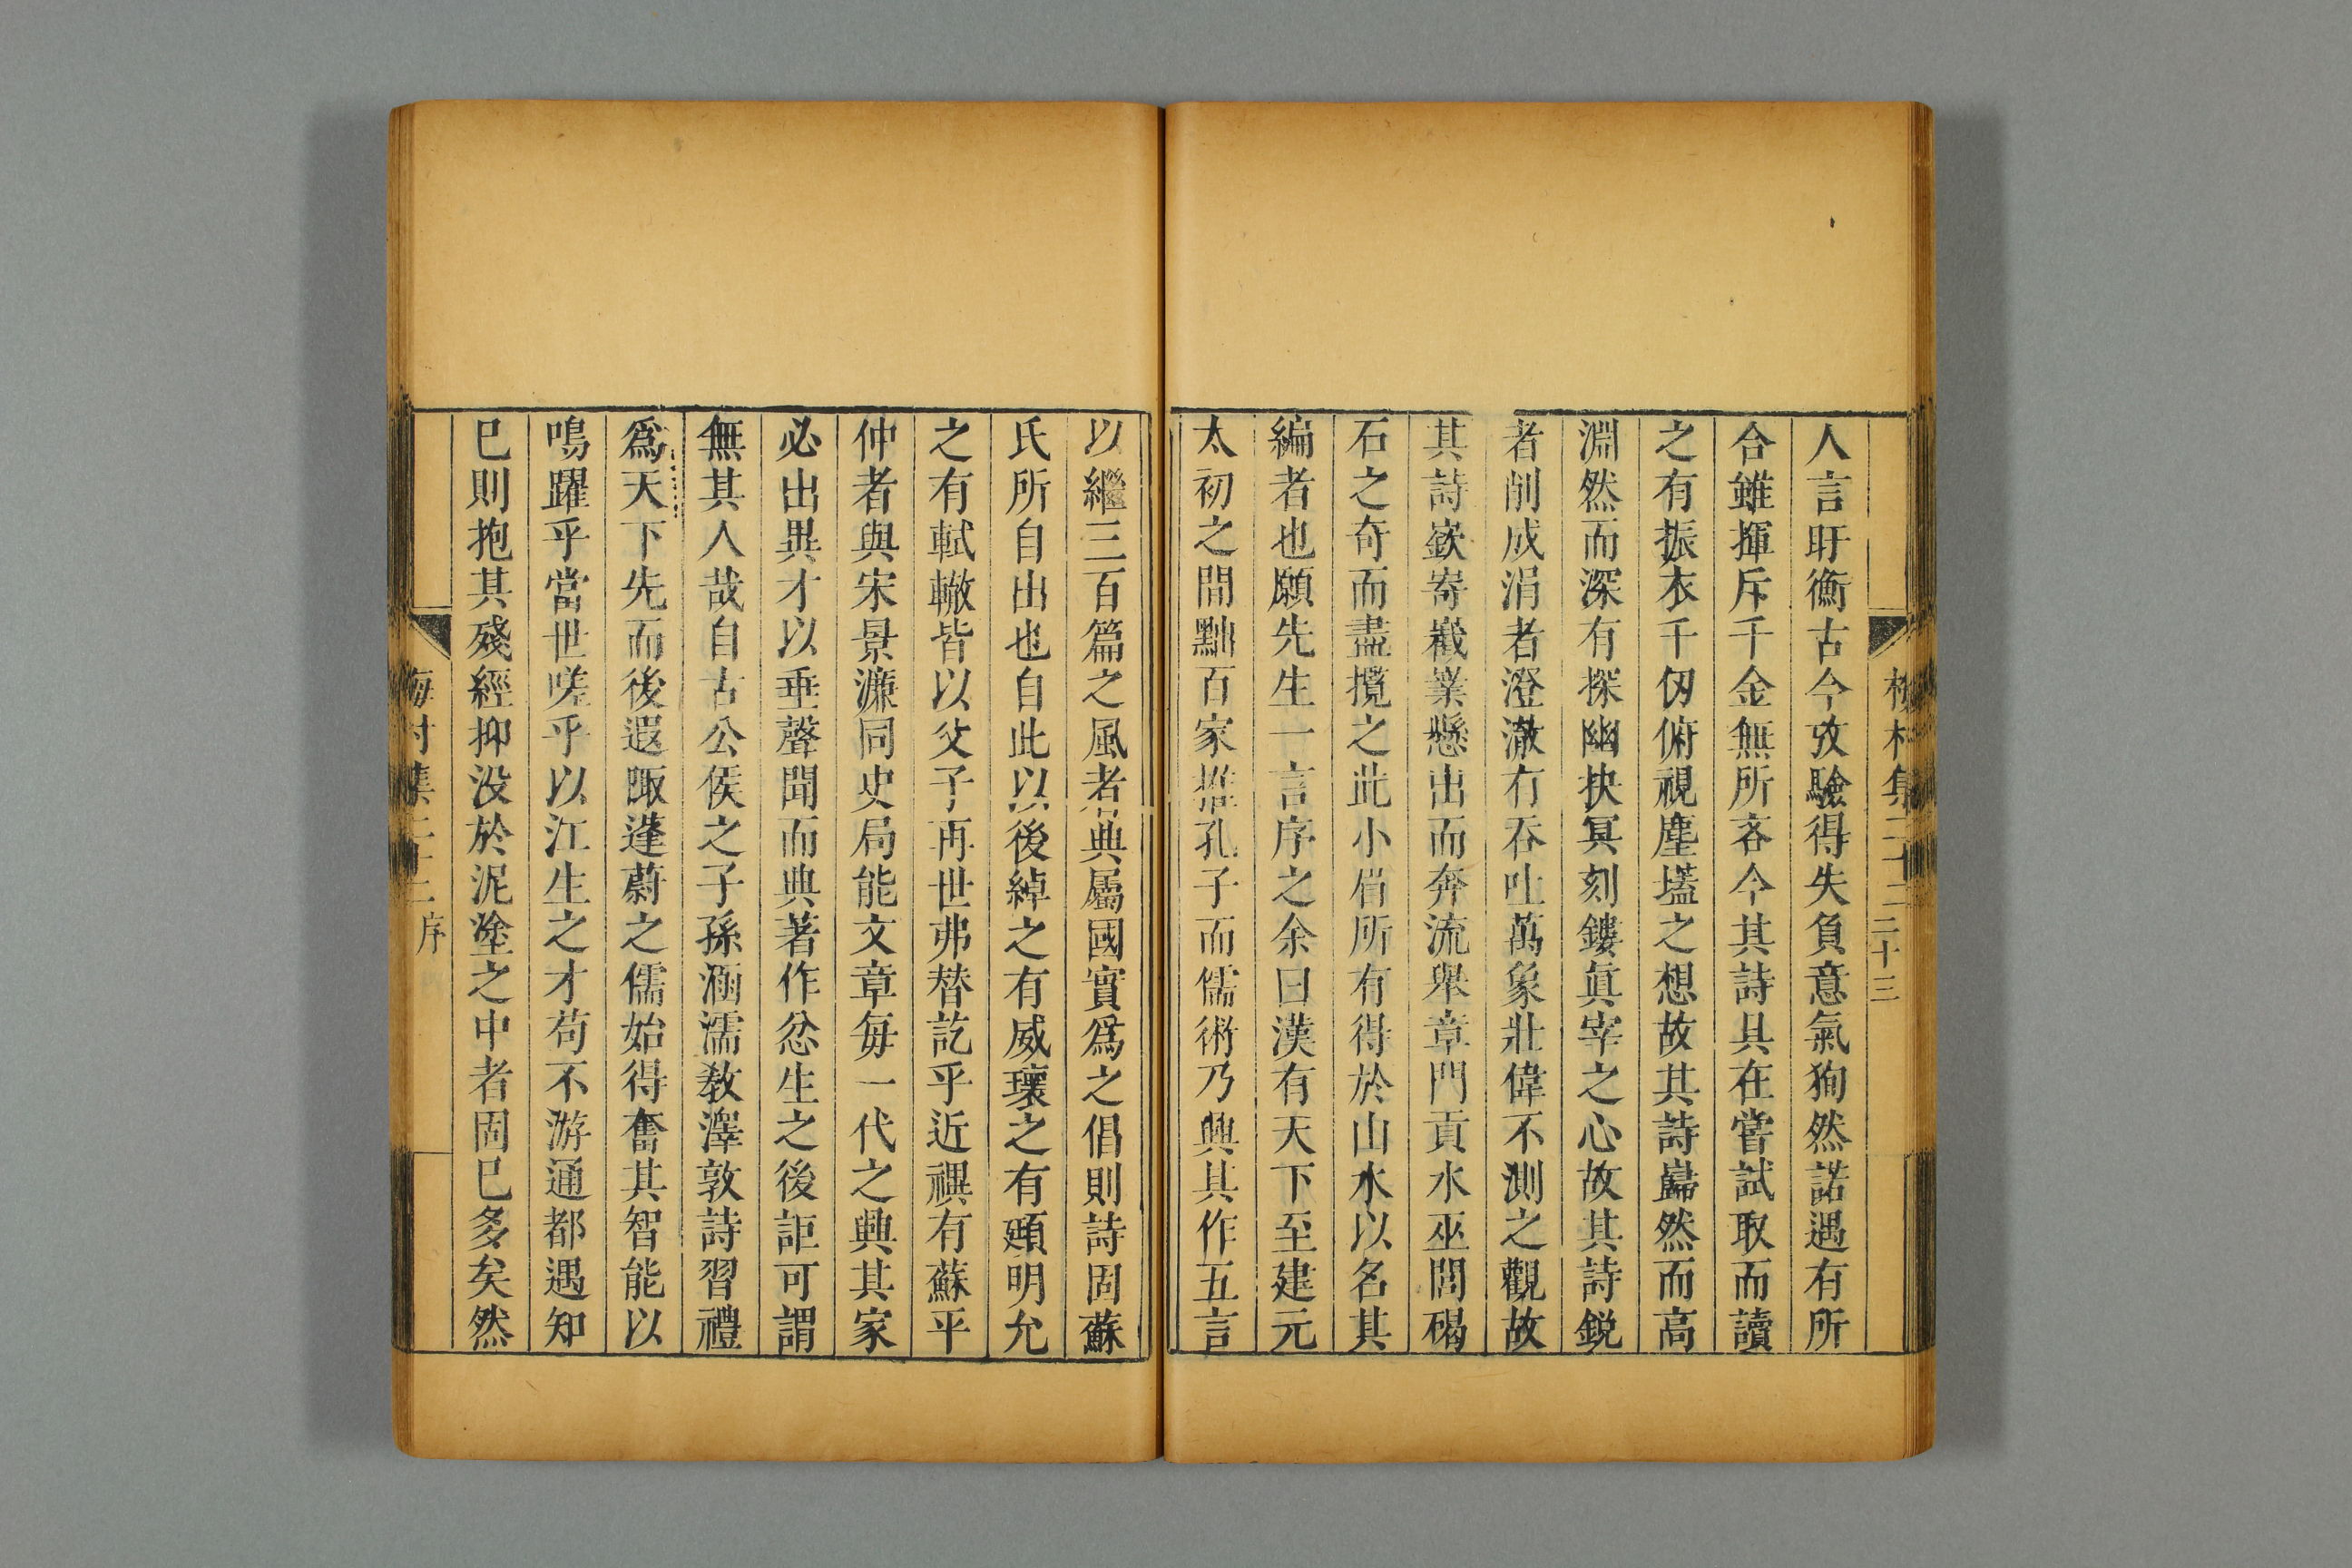 梅村集二十二 二十三
人言盱衡古今攷驗得失負意氣狥然諾遇有所
合雖揮斥千金無所吝今其詩具在嘗試取而讀
之有振衣千仞俯視塵壒之想故其詩巋然而高
淵然而深有探幽抉冥刻鏤眞宰之心故其詩銳
者削成涓者澄澈冇吞吐萬象壯偉不測之觀故
其詩嶔崎嶻嶪懸出而奔流與章門貢水巫閭碣
石之奇而盡攬之此小眉所有得於山水以名其
編者也願先生一言序之余曰漢有天下至建元
太初之間黜百家推孔子而儒術乃興其作五言
以繼三百篇之風者典屬國實爲之倡則詩固蘇
氏所自出也自此以後綽之有威瓌之有頲明允
之有軾轍皆以父子再世弗替訖乎近禩有蘇平
仲者與宋景濂同史局能文章每一代之興其家
必出異才以垂聲聞而典著作忿生之後詎可謂
無其人哉自古公侯之子孫涵濡敎澤敦詩習禮
爲天下先而後遐陬蓬蔚之儒始得奮其智能以
鳴躍乎當世嗟乎以江生之才苟不游通都遇知
巳則抱其殘經抑没於泥塗之中者固巳多矣然
梅村集二十二 序